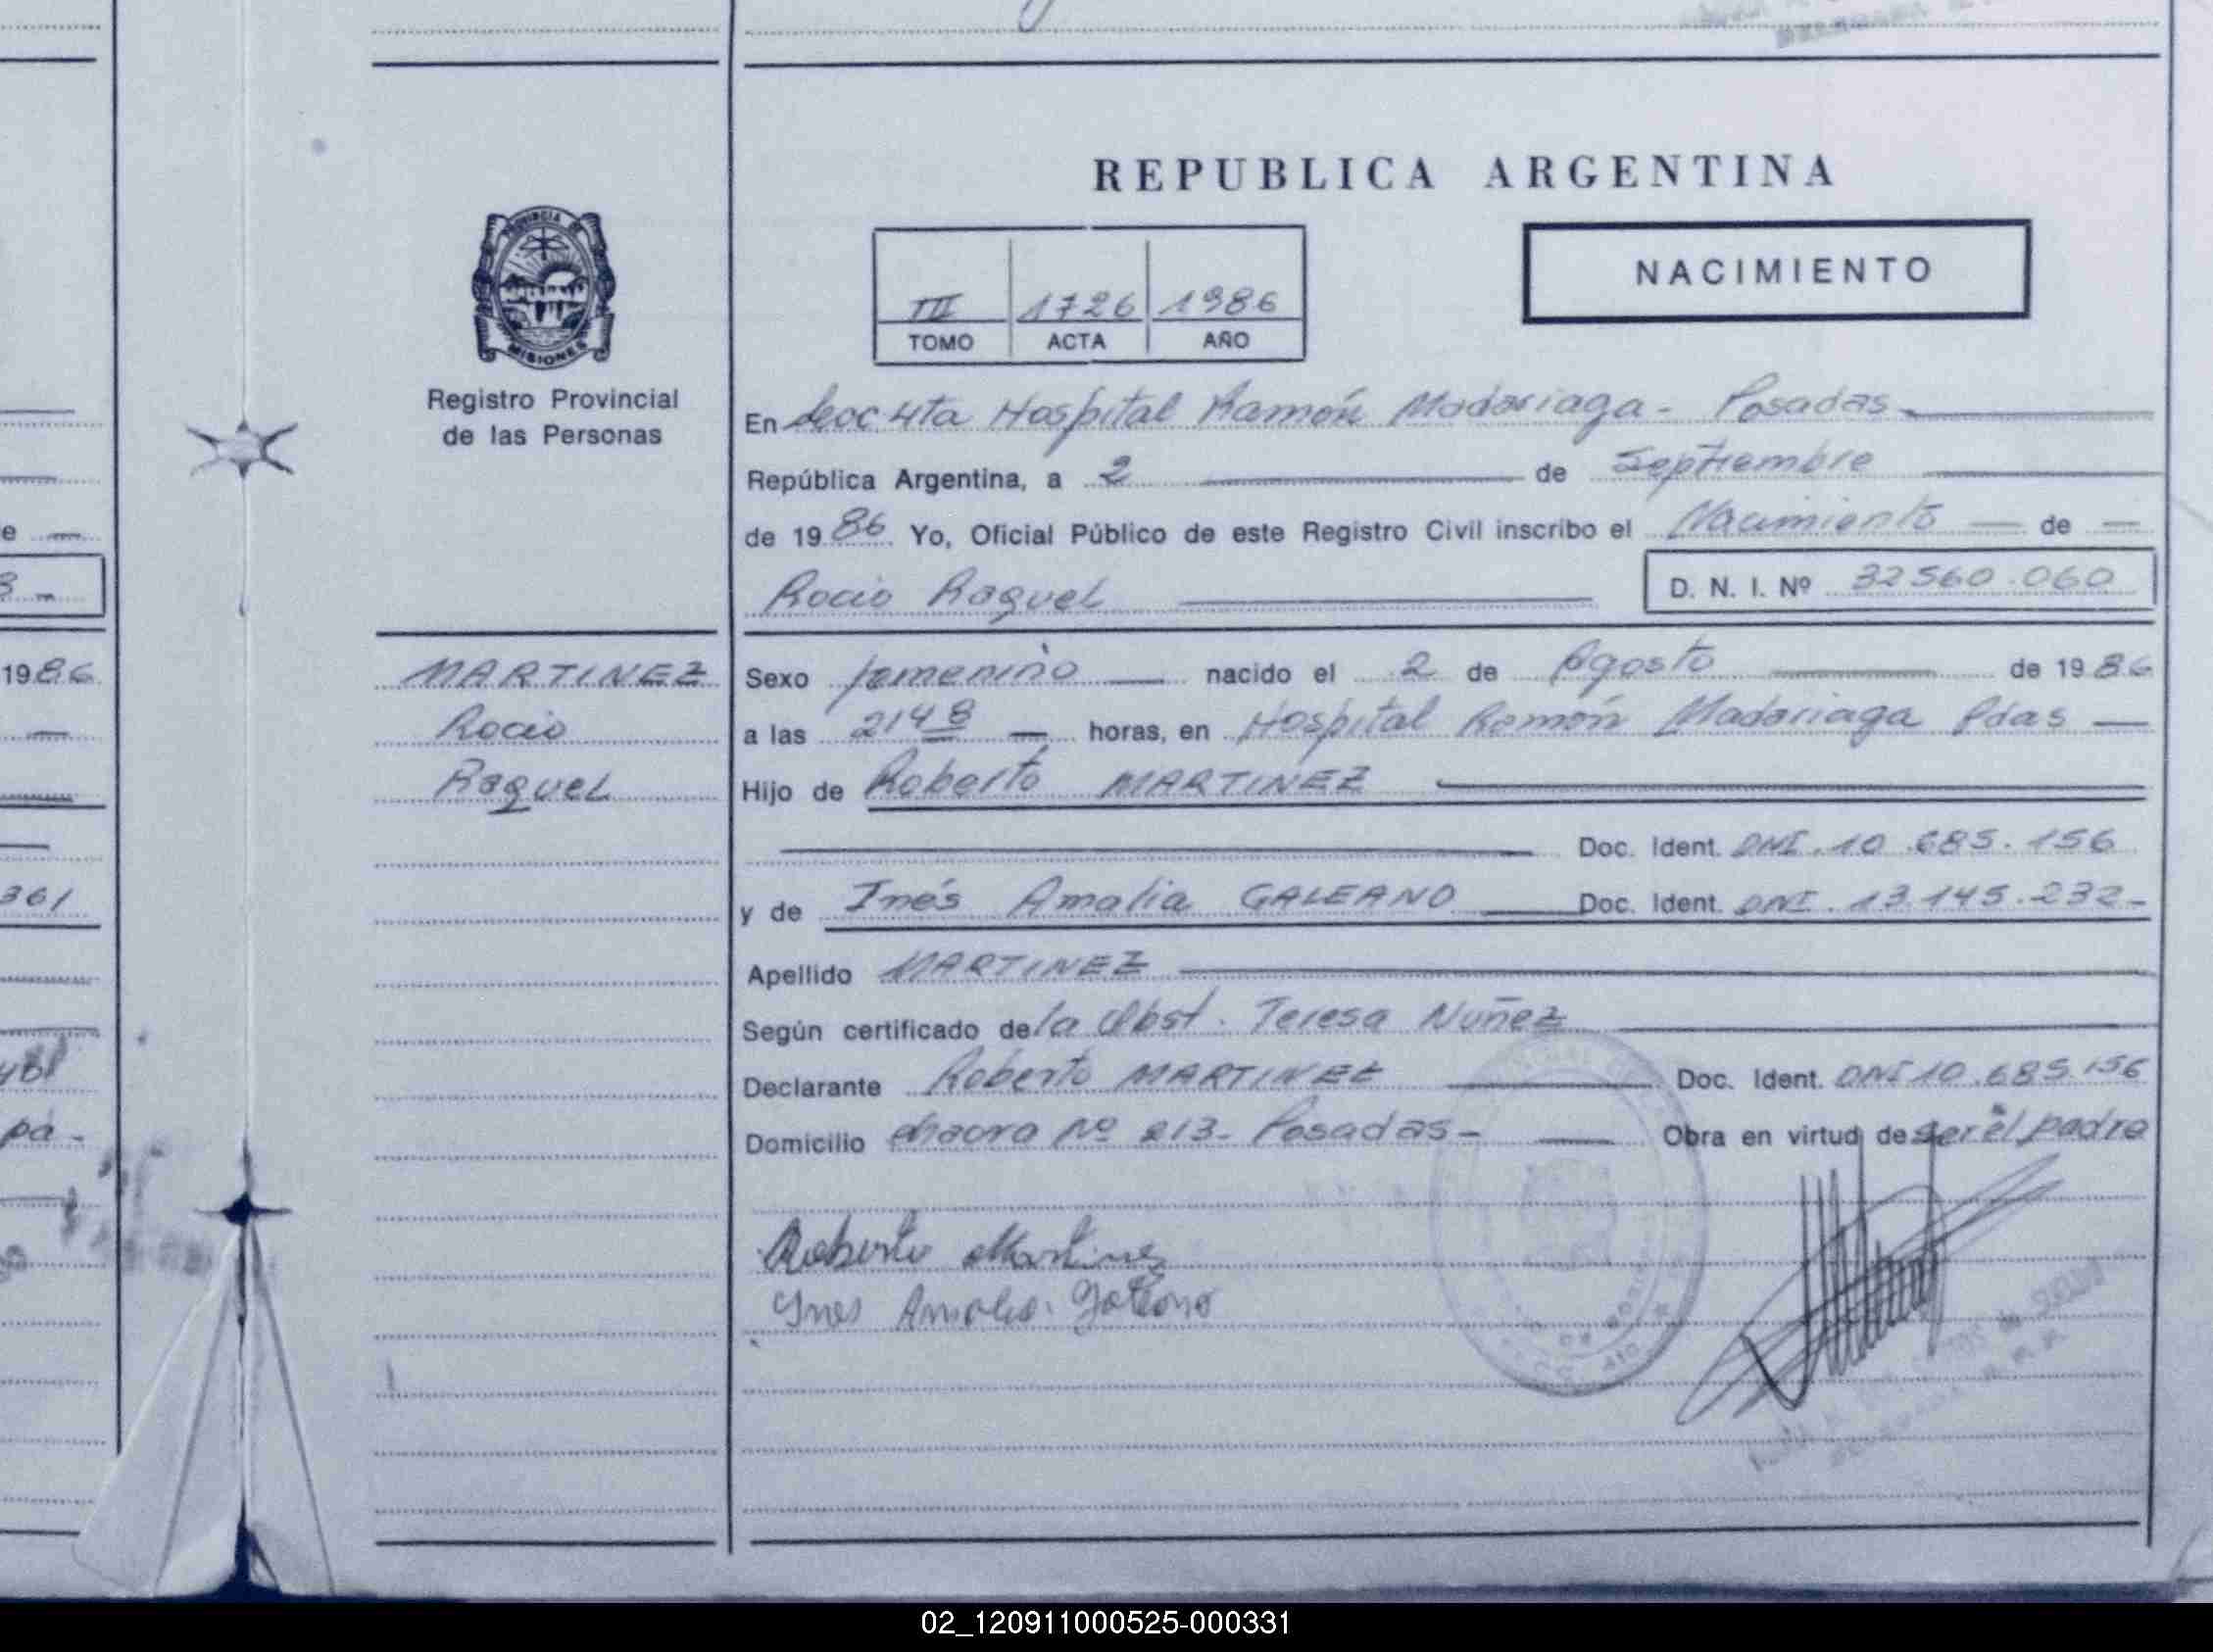 REPUBLICA ARGENTINA
NACIMIENTO
III 1726 1986
TOMO ACTA AÑO
PROVINCIA DE
MISIONES
Registro Provincial
de las Personas
En Secc 4ta Hospital Ramón Madariaga - Posadas
República Argentina, a 2 de Septiembre
de 1986 Yo, Oficial Público de este Registro Civil inscribo el Nacimiento de
Rocio Raquel D. N. I. Nº 32560.060
MARTINEZ
Rocio
Raquel
Sexo femenino nacido el 2 de Agosto de 1986
a las 2148 horas, en Hospital Ramón Madariaga Pdas
Hijo de Roberto MARTINEZ
Doc. Ident. DNI. 10.685.156
y de Inés Amalia GALEANO Doc. Ident. DNI. 13.145.232-
Apellido MARTINEZ
Según certificado de la Obst. Teresa Nuñez
Declarante Roberto MARTINEZ Doc. Ident. DNI 10.685.156
Domicilio chacra Nº 213- Posadas- Obra en virtud de ser el padre
Roberto Martinez
Ynes Amalia Galeano
1986
361
pa-
02_120911000525-000331